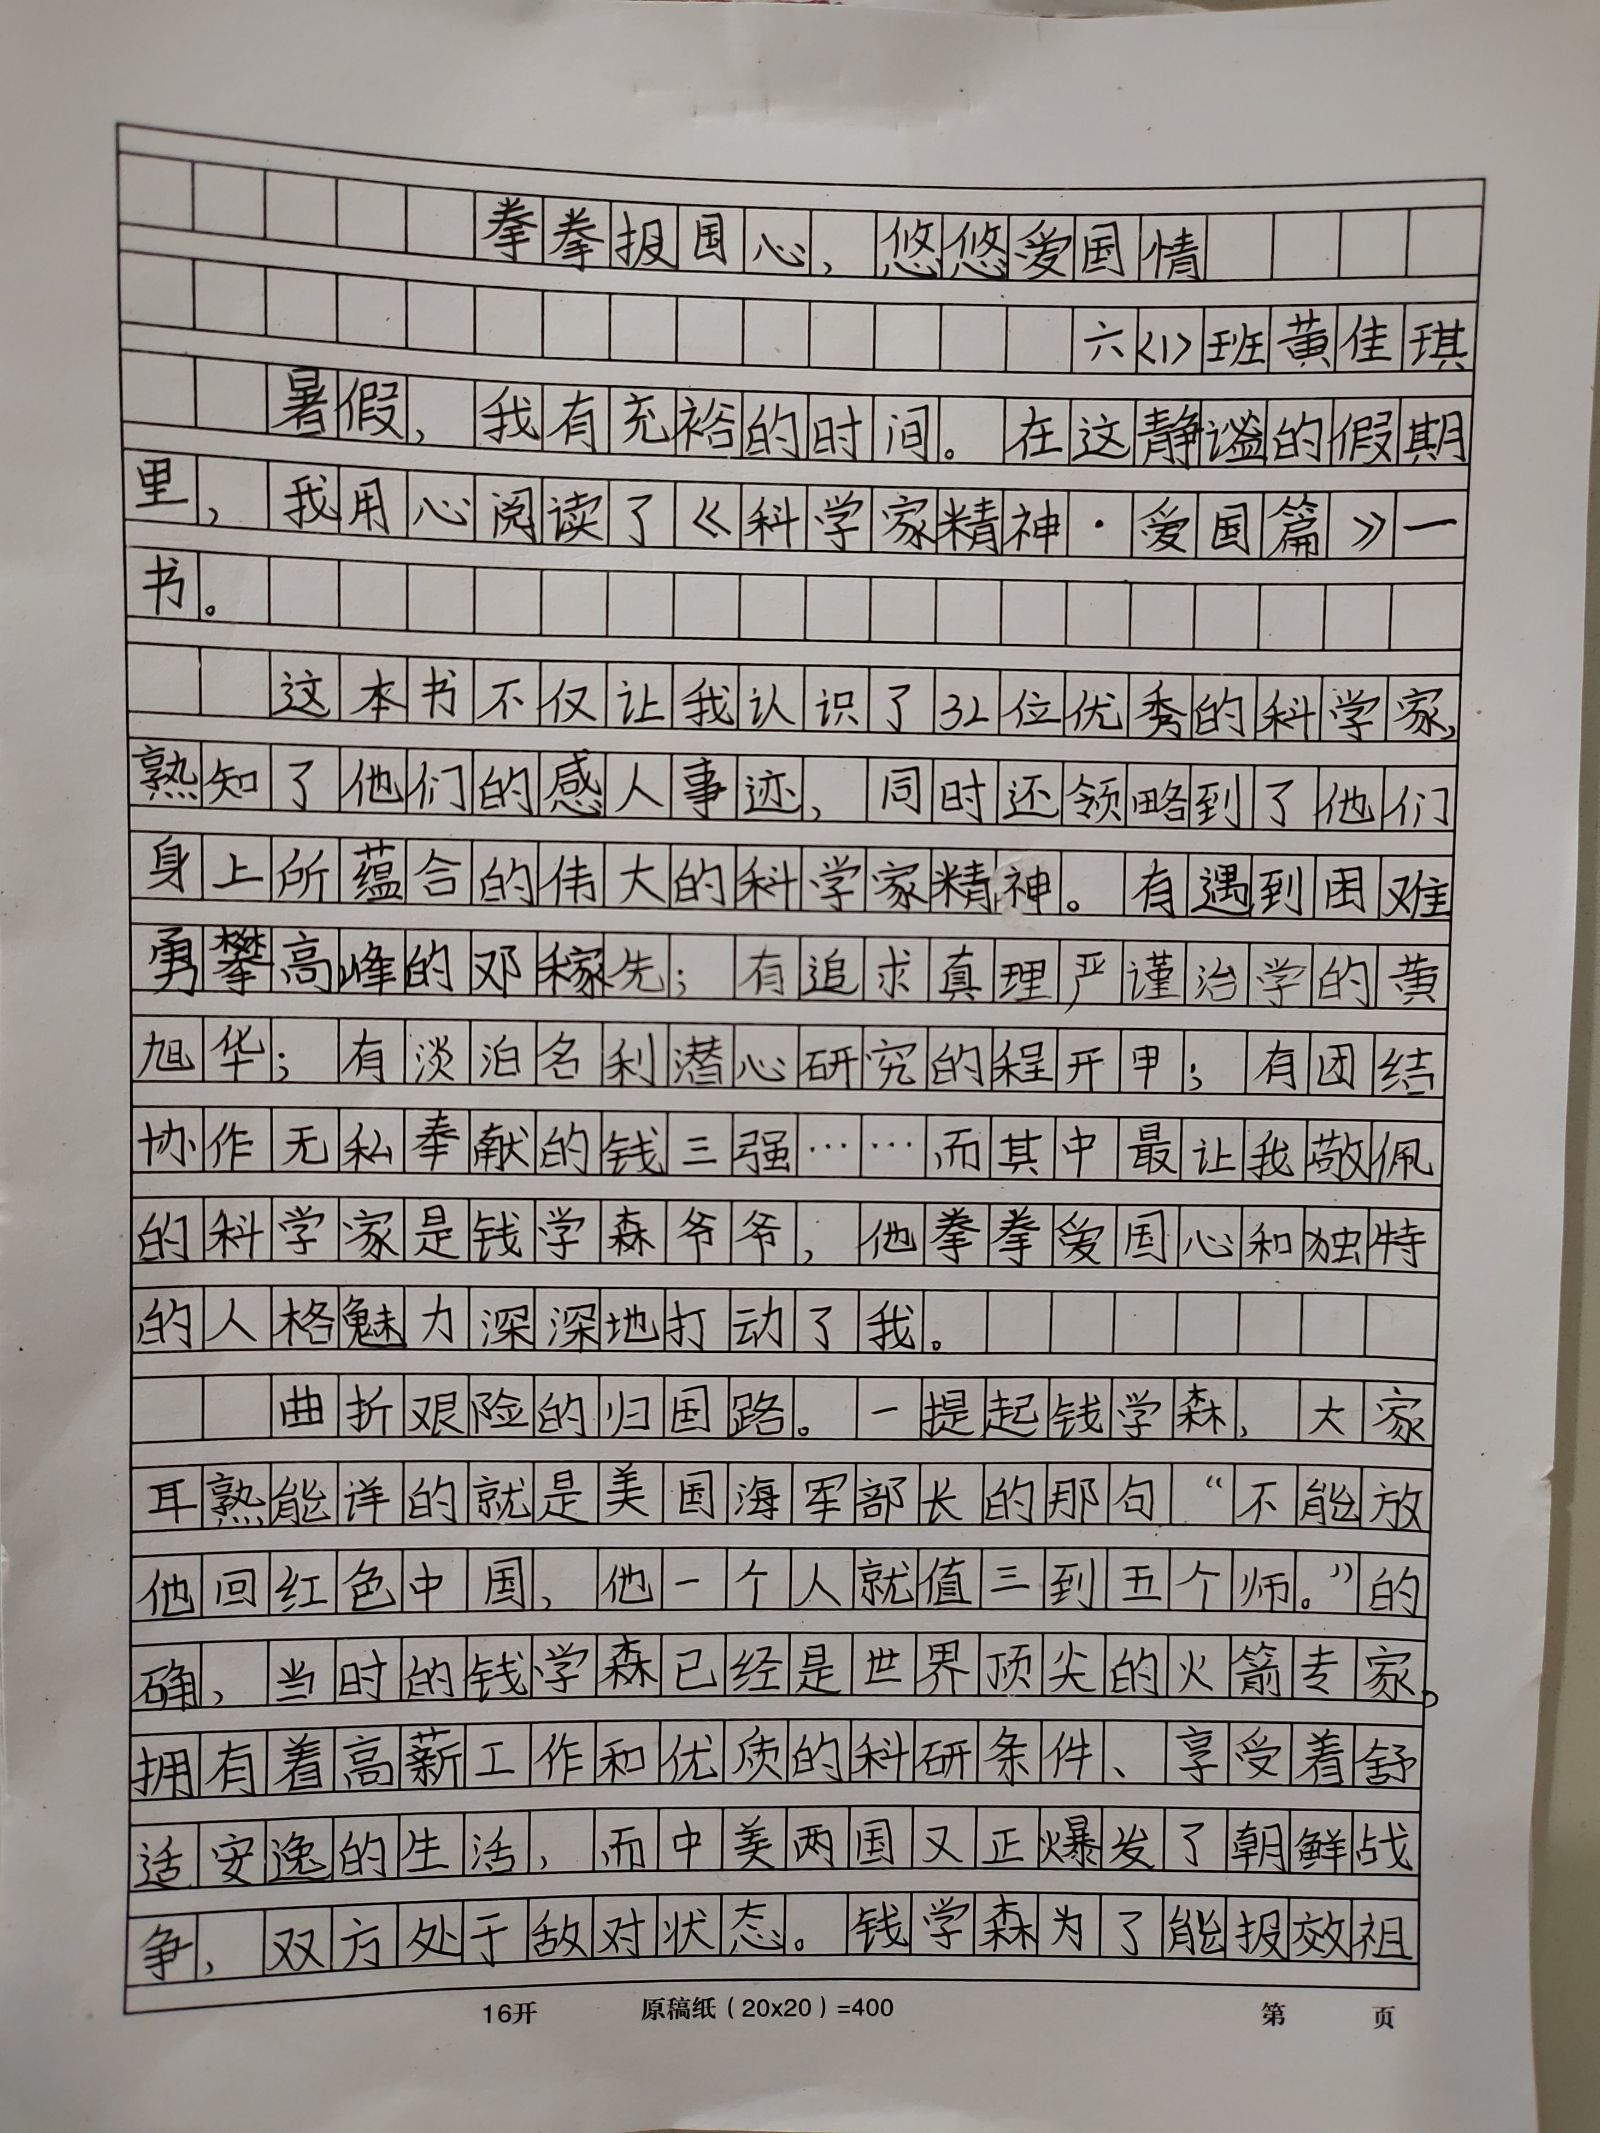 拳拳报国心，悠悠爱国情
六<1>班黄佳琪
暑假，我有充裕的时间。在这静谧的假期
里，我用心阅读了《科学家精神·爱国篇》一
书。
这本书不仅让我认识了32位优秀的科学家，
熟知了他们的感人事迹，同时还领略到了他们
身上所蕴含的伟大的科学家精神。有遇到困难
勇攀高峰的邓稼先；有追求真理严谨治学的黄
旭华；有淡泊名利潜心研究的程开甲；有团结
协作无私奉献的钱三强……，而其中最让我敬佩
的科学家是钱学森爷爷，他拳拳爱国心和独特
的人格魅力深深地打动了我。
曲折艰险的归国路。一提起钱学森，大家
耳熟能详的就是美国海军部长的那句“不能放
他回红色中国，他一个人就值三到五个师。”的
确，当时的钱学森已经是世界顶尖的火箭专家。
拥有着高薪工作和优质的科研条件、享受着舒
适安逸的生活，而中美两国又正爆发了朝鲜战
争，双方处于敌对状态。钱学森为了能报效祖
16开 原稿纸（20x20）=400 第 页